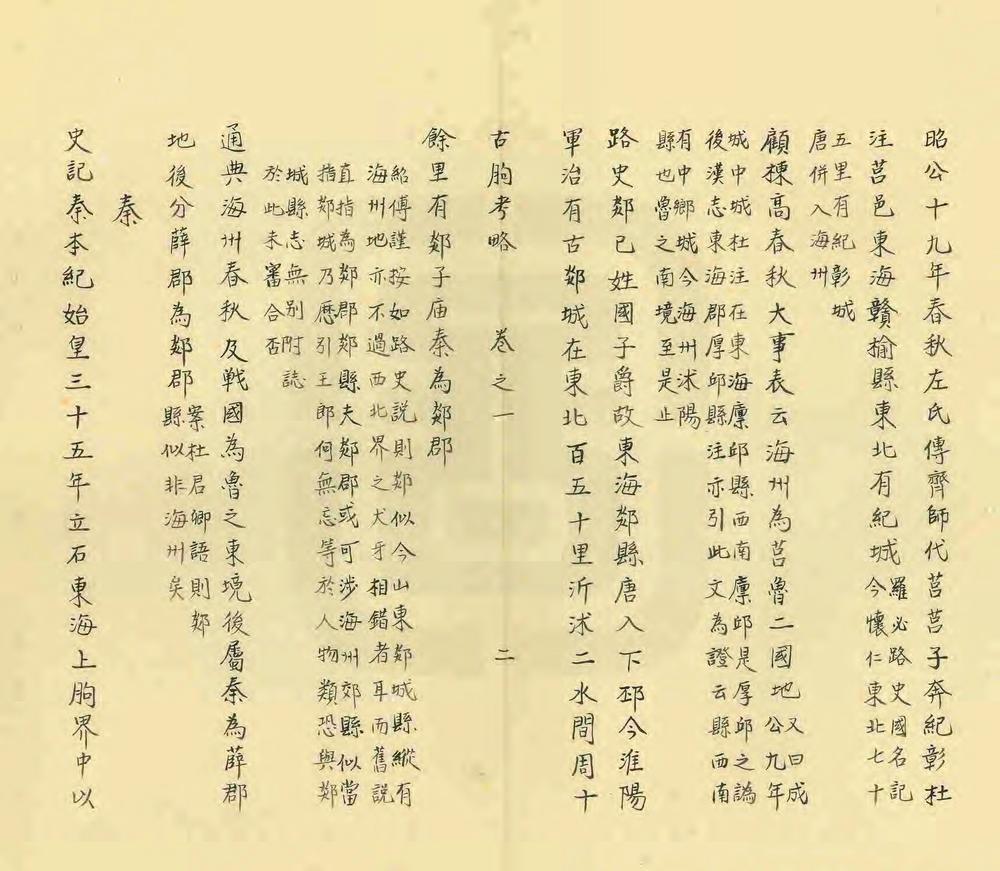 昭公十九年春秋左氏傳齊師代莒莒子奔紀彰杜
注莒邑東海贛揄縣東北有紀城今懷仁東北七十
羅必路史國名記
五里有紀彰城
唐併入海州
顧棟高春秋大事表云海州為莒魯二國地又曰成
公九年
城中城杜注在東海廩邱縣西南廩邱是厚邱之譌
後漢志東海郡厚邱縣注亦引此文為證云縣西南
有中鄉城今海州沭陽
縣也魯之南境至是止
路史郯己姓國子爵故東海郯縣唐入下邳今淮陽
軍治有古郯城在東北百五十里沂沭二水間周十
古朐考略 卷之一 二
餘里有郯子庙秦為郯郡
紹傅謹按如路史說則郯似今山東郯城縣縱有
海州地亦不過西北界之犬牙相錯者耳而舊說
直指為郯郡郯縣夫郯郡或可涉海州郯縣似當
指郯城乃歷引王郎何無忘等於人物類恐與郯
城縣志無别附誌
於此未審合否
通典海州春秋及戰國為魯之東境後屬秦為薛郡
地後分薛郡為郯郡案杜君卿語則郯
縣似非海州矣
秦
史記秦本紀始皇三十五年立石東海上朐界中以